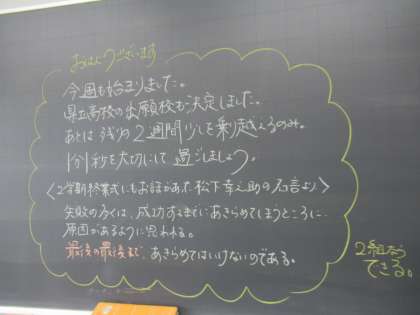 おはようございます
今週も始まりました。
県立高校の出願校も決定しました。
あとは残り2週間少しを乗り越えるのみ。
1分1秒を大切にして過ごしましょう。
<2学期終業式にもお話があった松下幸之助の名言より>
失敗の多くは、成功するまでにあきらめてしまうところに
原因があるように思われる。
最後の最後まであきらめてはいけないのである。
2組なら
できる。